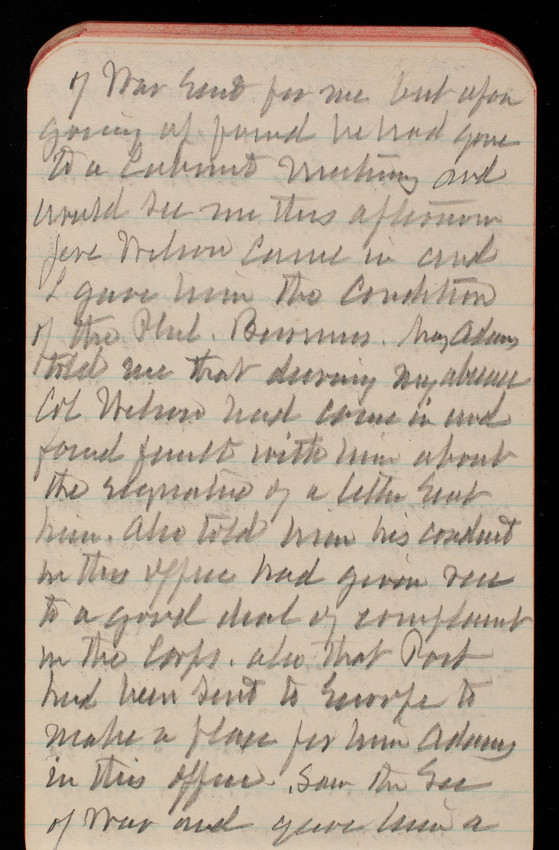 of War send for me but upon
going up found he had gone
to a Cabinet meeting and
would see me this afternoon
Jere Wilson came in and
I gave him the Condition
of the Phil. Business. Maj Adams
told me that during my absence
Col Wilson had come in and
found fault with him about
the signature of a letter sent
him. also told him his conduct
in this office had given rise
to a good deal of complaint
in the Corps. also that Post
had been sent to Europe to
make a place for him Adams
in this office. Saw the Sec
of War and gave him a